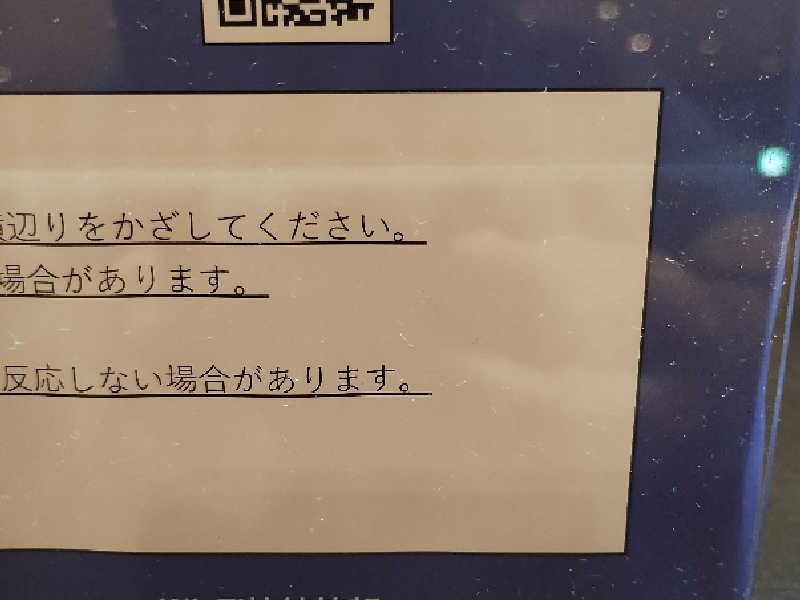 辺りをかざしてください。
場合があります。
反応しない場合があります。